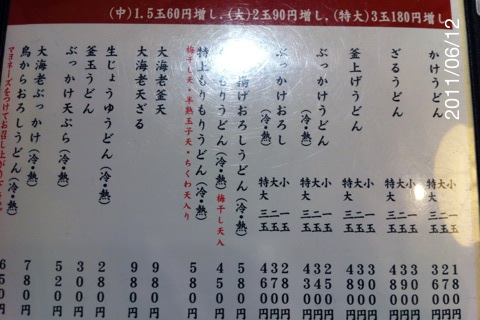 (中)1.5玉60円増し.(大)2玉90円増し.(特大)3玉180円増し
かけうどん
小一玉 180円
大二玉 270円
特大三玉 360円
ざるうどん
小一玉 300円
大二玉 390円
特大三玉 480円
釜上げうどん
小一玉 300円
大二玉 390円
特大三玉 480円
ぶっかけうどん(冷・熱)
小一玉 250円
大二玉 340円
特大三玉 430円
ぶっかけおろし(冷・熱)
小一玉 280円
大二玉 370円
特大三玉 460円
揚げおろしうどん(冷・熱) 580円
もりうどん(冷・熱) 梅干し天入 450円
特上もりもりうどん(冷・熱) 580円
梅干し天・半熟玉子天・ちくわ天入り
大海老天ざる 980円
大海老釜天 980円
生じょうゆうどん(冷・熱) 280円
釜玉うどん 300円
ぶっかけ天ぷら(冷・熱) 520円
大海老ぶっかけ(冷・熱) 780円
鳥からおろしうどん(冷・熱) 650
マヨネーズをつけてお召し上がり下さ
2011/06/12